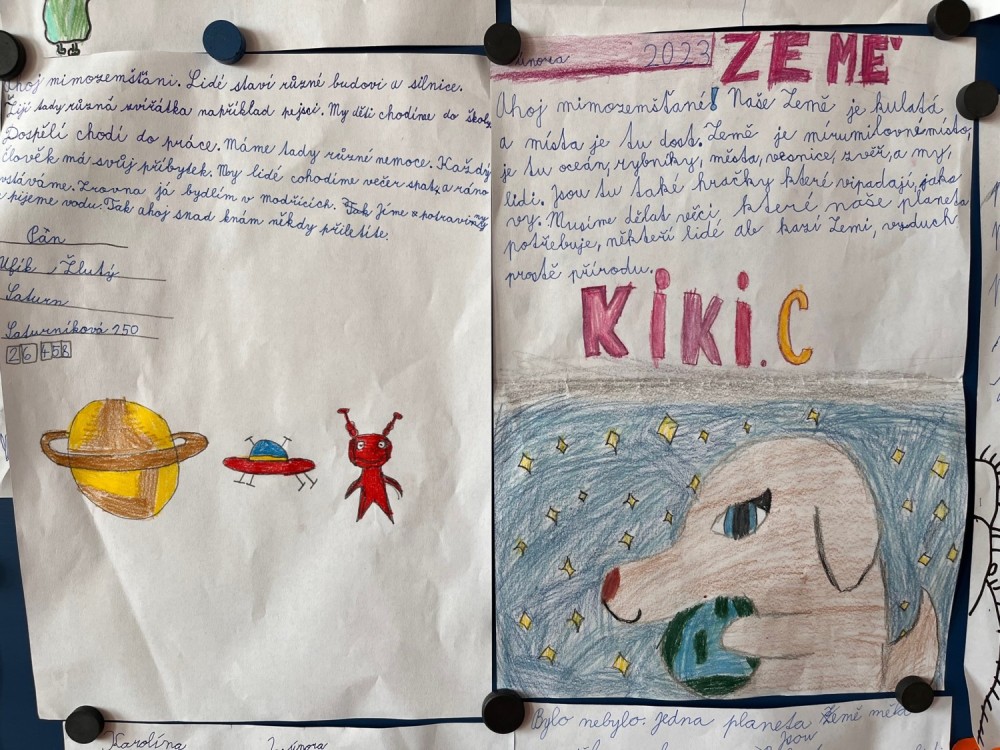 Ahoj mimozemšťani. Lidé staví různé budovi a silnice.
Žijí tady různá zviřátka například pejsci. My děti chodíme do školy
Dospělí chodí do práce. Máme tady různé nemoce. Každý
člověk má svůj příbytek. My lidé cohodíme večer spat, a ráno
vstáváme. Zrovna já bydlím v Modřicích. Jíme z potraviny
a pijeme vodu. Tak ahoj snad knám někdy příletíte.
Pán
Ufík Žlutý
Saturn
Saturníková 250
26 458
února 2023 ZEMĚ
Ahoj mimozemšťané! Naše Země je kulatá
a místa je tu dost. Země je mírumilovné místo,
je tu oceán, rybníky, města, vesnice, zvěř, a my,
lidi. Jsou tu také hračky které vipadají, jako
vy. Musíme dělat věci, které naše planeta
potřebuje, někteří lidé ale kazí Zemi, vzduch
prostě přírodu.
KIKI.C
Karolína února
Bylo nebylo. Jedna planeta Země
Jsou